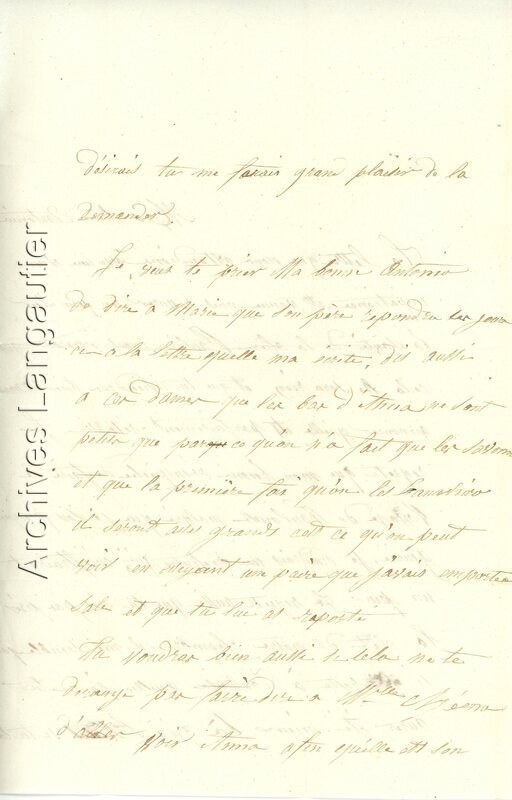 désirais tu me ferais grand plaisir de la
demander.
Je veux te prier Ma bonne Antonia
de dire a Marie que son père repondra ses jours
ci a la lettre quelle ma écrite, dis aussi
a ces dames que les bas d'Anna ne sont
petits que parce qu'on n'a fait que les savonner
et que la première foi qu'on les
il seront asses grands cest ce qu'on peut
voir en une paire que j'avais emportée
sale et que tu lui as raporté
Tu voudras bien aussi si cela ne te
dérange pas faire dire a Mlle
d'aller voir Anna afin quelle et son
Archives Langautier